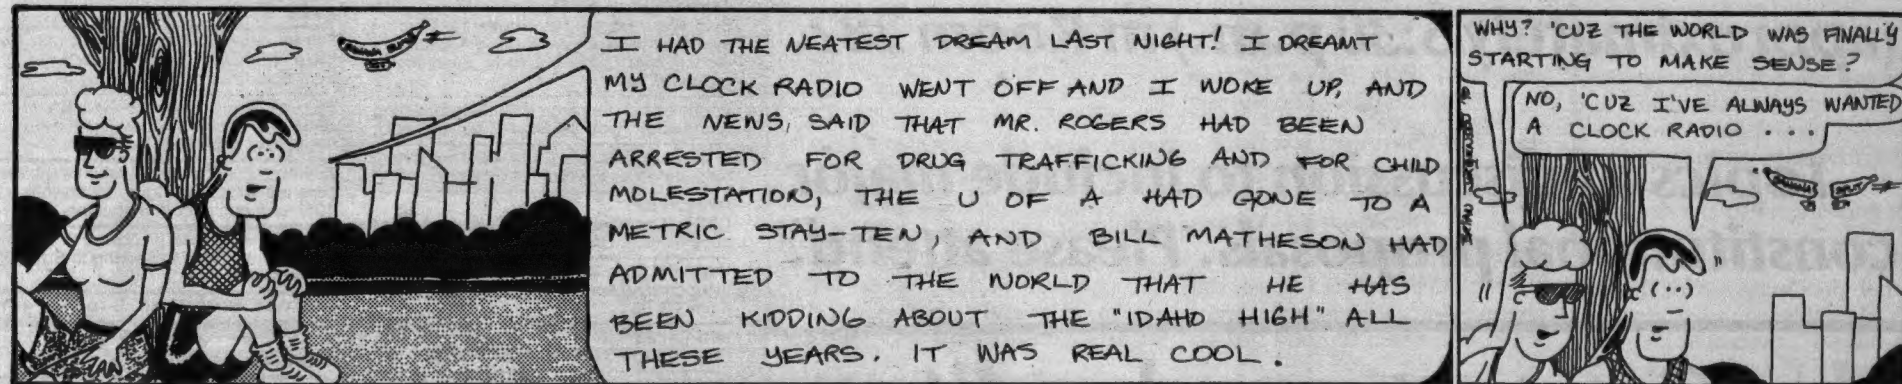 I HAD THE NEATEST DREAM LAST NIGHT! I DREAMT
MY CLOCK RADIO WENT OFF AND I WOKE UP, AND
THE NEWS, SAID THAT MR. ROGERS HAD BEEN
ARRESTED FOR DRUG TRAFFICKING AND FOR CHILD
MOLESTATION, THE U OF A HAD GONE TO A
METRIC STAY-TEN, AND BILL MATHESON HAD
ADMITTED TO THE WORLD THAT HE HAS
BEEN KIDDING ABOUT THE "IDAHO HIGH" ALL
THESE YEARS. IT WAS REAL COOL.
WHY? 'CUZ THE WORLD WAS FINALLY
STARTING TO MAKE SENSE?
NO, 'CUZ I'VE ALWAYS WANTED
A CLOCK RADIO . . .